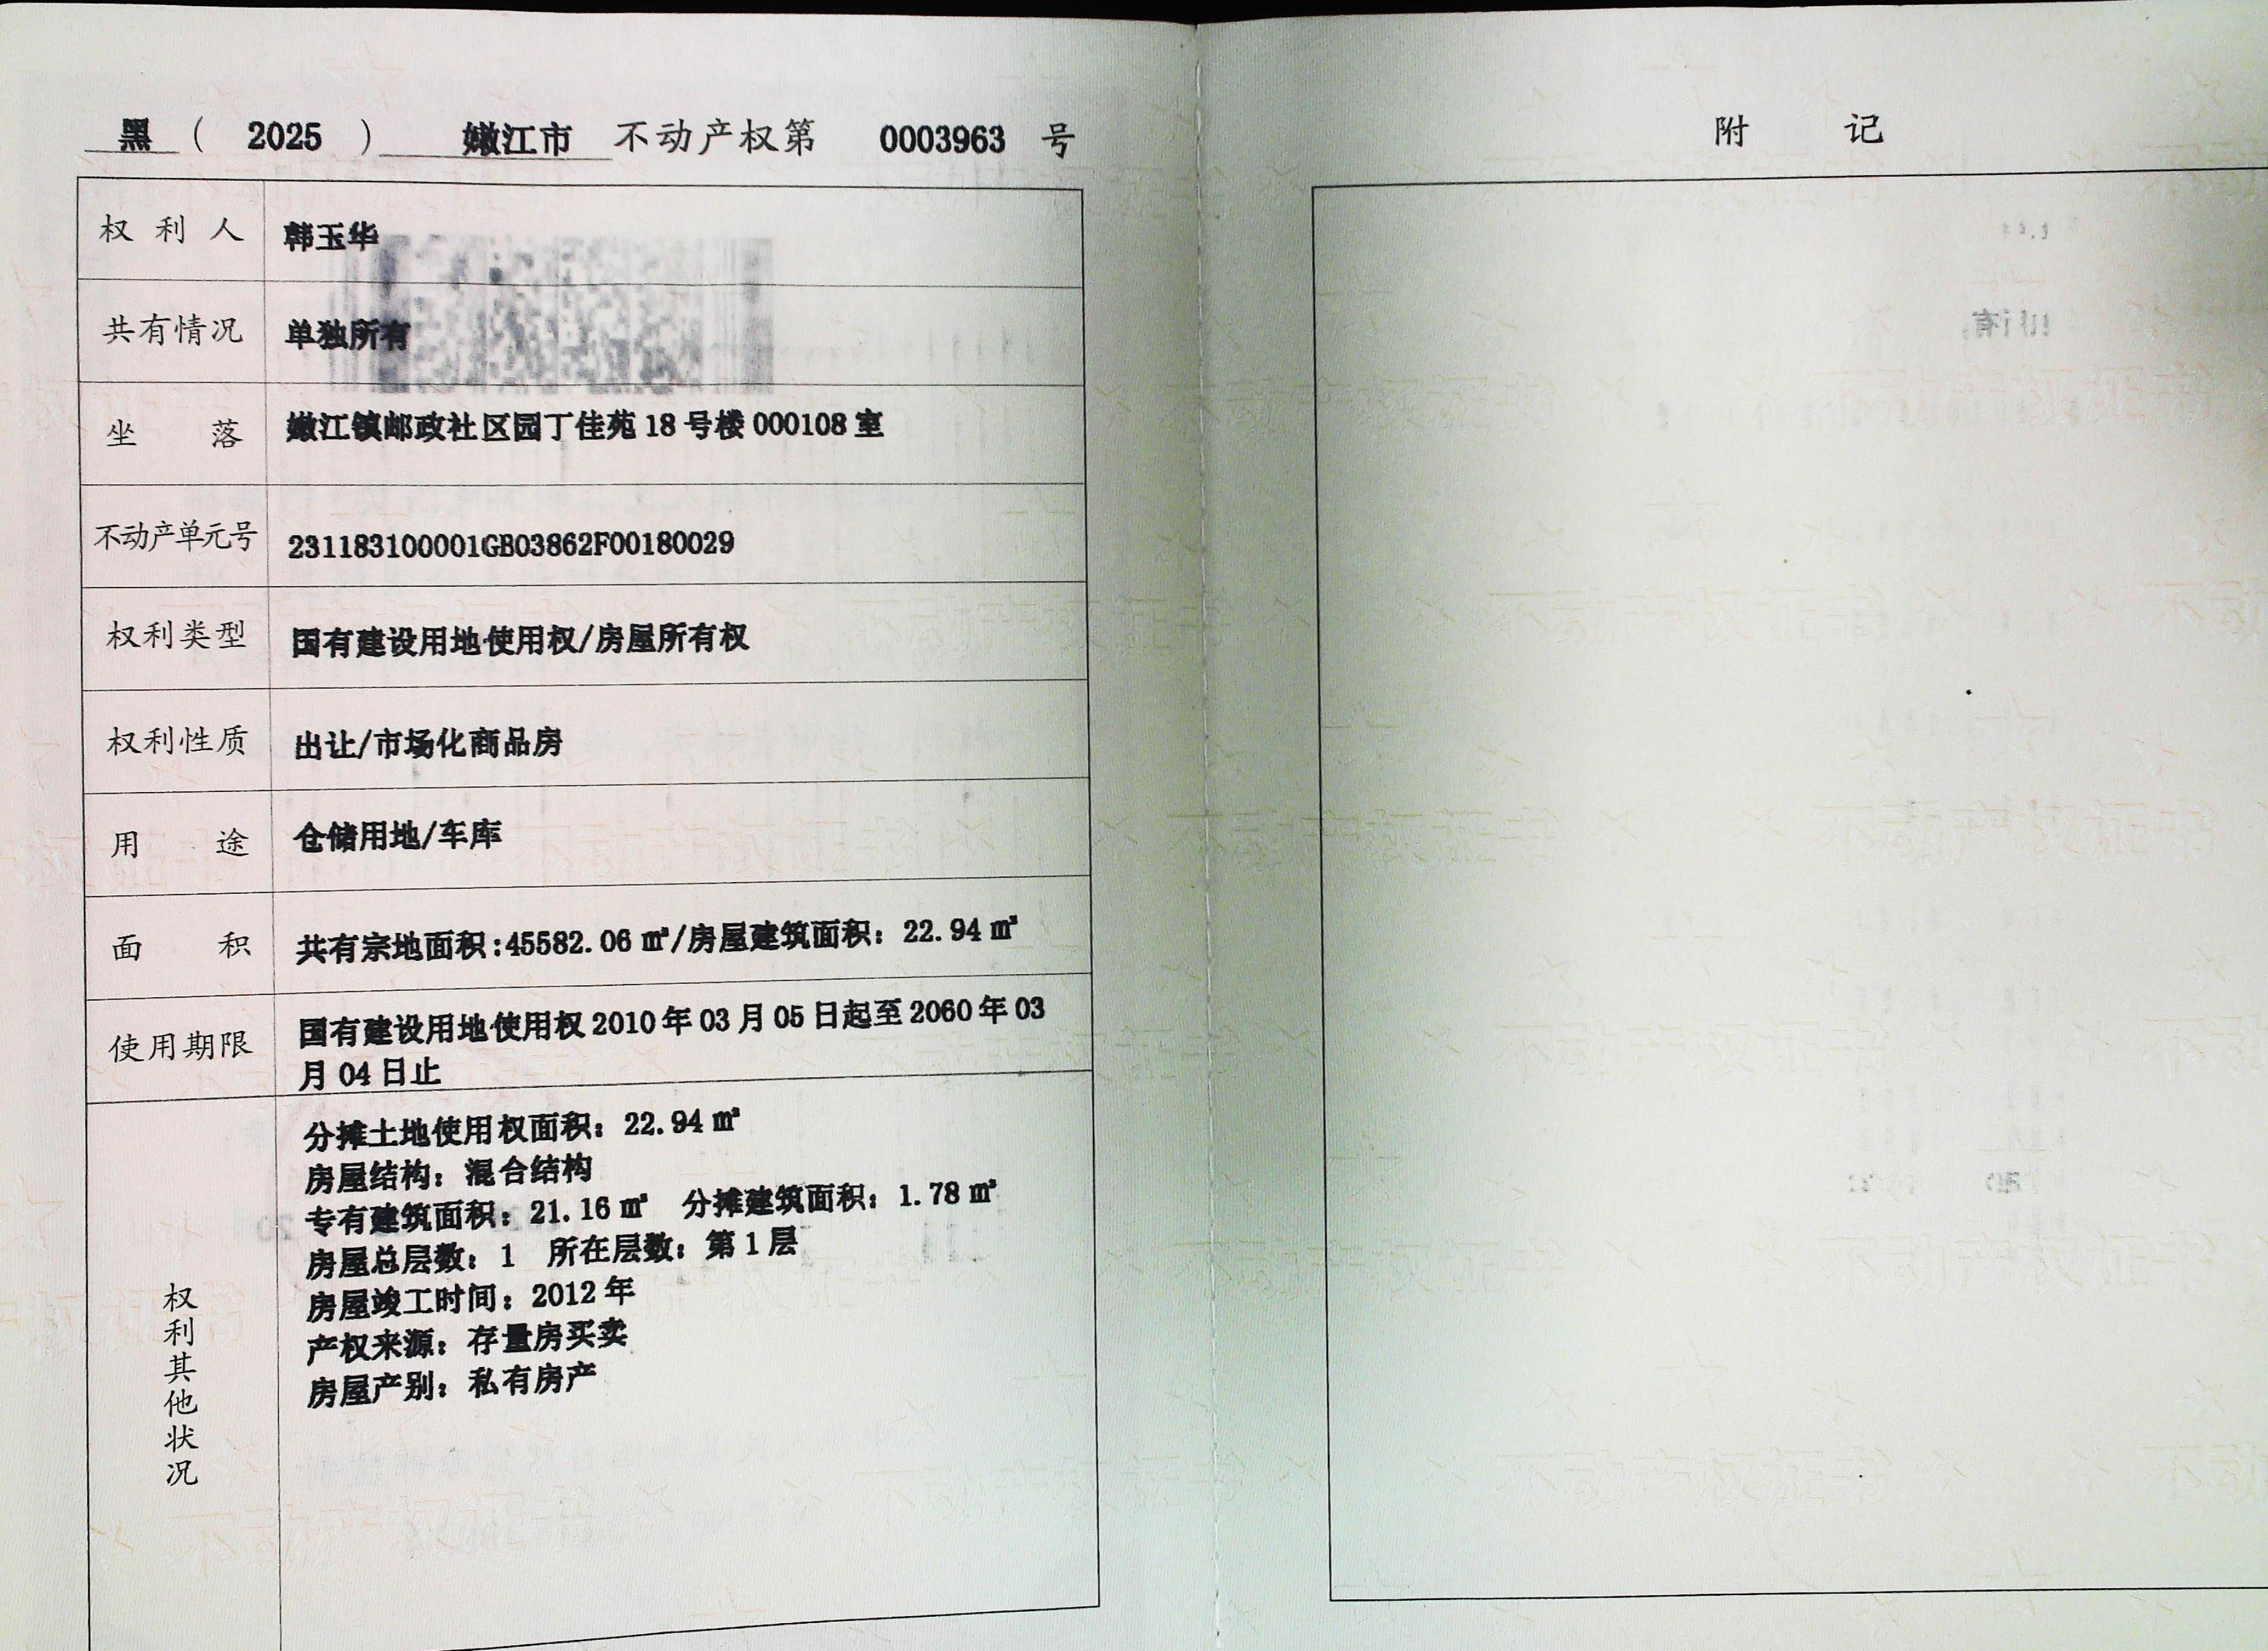 黑（ 2025 ） 嫩江市 不动产权第 0003963 号
权利人 韩玉华
共有情况 单独所有
坐落 嫩江镇邮政社区园丁佳苑 18 号楼 000108 室
不动产单元号 231183100001GB03862F00180029
权利类型 国有建设用地使用权/房屋所有权
权利性质 出让/市场化商品房
用途 仓储用地/车库
面积 共有宗地面积:45582.06 ㎡/房屋建筑面积：22.94 ㎡
使用期限 国有建设用地使用权 2010 年 03 月 05 日起至 2060 年 03
月 04 日止
权利其他状况
分摊土地使用权面积：22.94 ㎡
房屋结构：混合结构
专有建筑面积：21.16 ㎡ 分摊建筑面积：1.78 ㎡
房屋总层数：1 所在层数：第 1 层
房屋竣工时间：2012 年
产权来源：存量房买卖
房屋产别：私有房产
附记